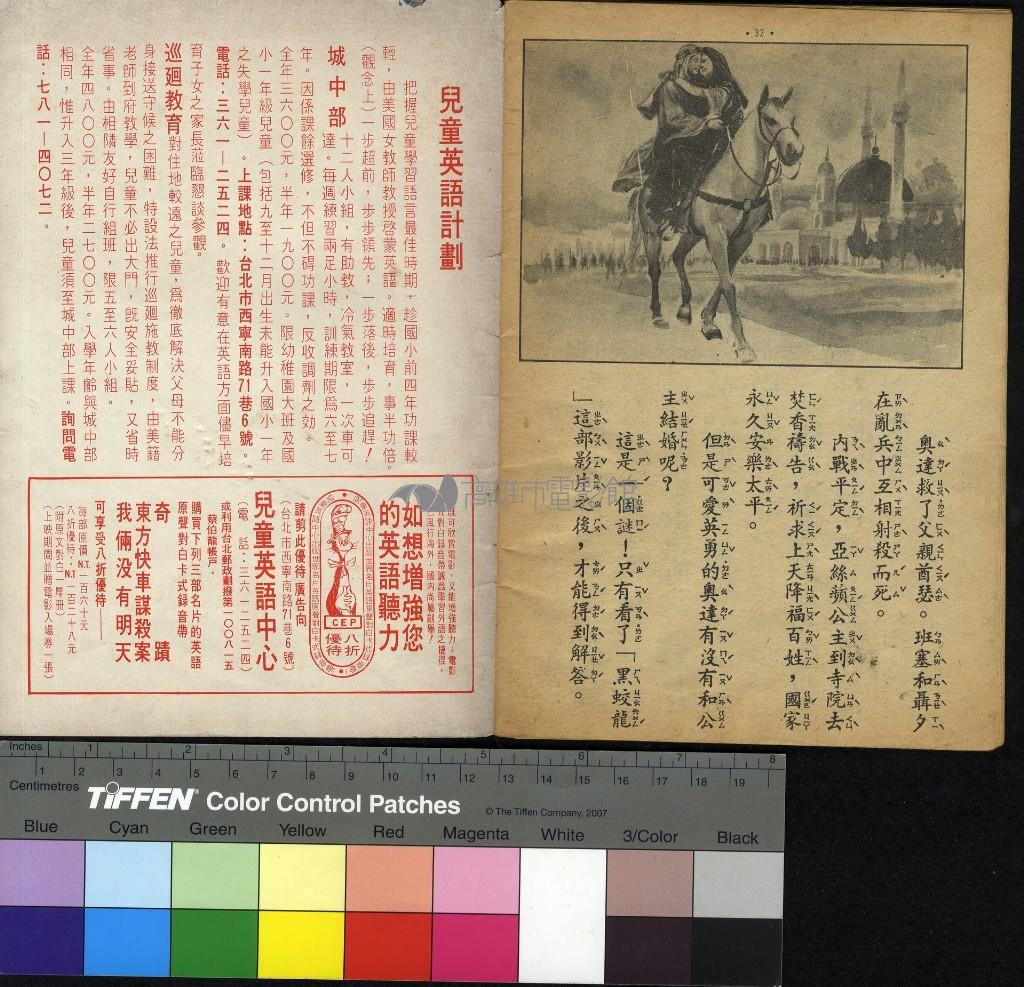 • 32 •
奧達救了父親酋瑟。班塞和聶夕
在亂兵中互相射殺而死。
內戰平定，亞絲蘋公主到寺院去
焚香禱告，祈求上天降福百姓，國家
永久安樂太平。
但是可愛英勇的奧達有沒有和公
主結婚呢？
這是一個謎！只有看了「黑蛟龍
」這部影片之後，才能得到解答。
兒童英語計劃
把握兒童學習語言最佳時期，趁國小前四年功課較
輕，由美國女教師教授啓蒙英語。適時培育，事半功倍。
（觀念上）一步超前，步步領先；一步落後，步步追趕！
城中部 十二人小組，有助教，冷氣教室，一次車可
達。每週練習兩足小時，訓練期限爲六至七
年。因係課餘選修，不但不碍功課，反收調劑之効。
全年三六〇〇元，半年一九〇〇元。限幼稚園大班及國
小一年級兒童（包括九至十二月出生未能升入國小一年
之失學兒童）。上課地點：台北市西寧南路71巷6號。
電話：三六一—二五二四。歡迎有意在英語方面儘早培
育子女之家長蒞臨懇談參觀。
巡廻教育 對住地較遠之兒童，爲徹底解決父母不能分
身接送守候之困難，特設法推行巡廻施教制度，由美籍
老師到府教學，兒童不必出大門，既安全妥貼，又省時
省事。由相隣友好自行組班，限五至六人小組。
全年四八〇〇元，半年二七〇〇元。入學年齡與城中部
相同，惟升入三年級後，兒童須至城中部上課。詢問電
話：七八一—四〇七二。
如想增強您
的英語聽力
既可欣賞電影，又能增強聽力；電影
風行海外，國內尚屬創舉！
CEP
八折
優待
請剪此優待廣告向
（台北市西寧南路71巷6號）
兒童英語中心
（電話：三六一—二五二四）
或利用台北郵政劃撥第一〇〇八一五
蔡伯龍帳戶。
購買下列三部名片的英語
原聲對白卡式錄音帶
奇蹟
東方快車謀殺案
我倆没有明天
可享受八折優待——
每部原價NT.一百六十元
八折優待：NT.一百二十八元
（附原文對白一厚冊）
（上映期間並贈電影入場券一張）
高雄市電影館
Inches 1 2 3 4 5 6 7 8
Centimetres 1 2 3 4 5 6 7 8 9 10 11 12 13 14 15 16 17 18 19
TIFFEN® Color Control Patches
© The Tiffen Company, 2007
Blue Cyan Green Yellow Red Magenta White 3/Color Black